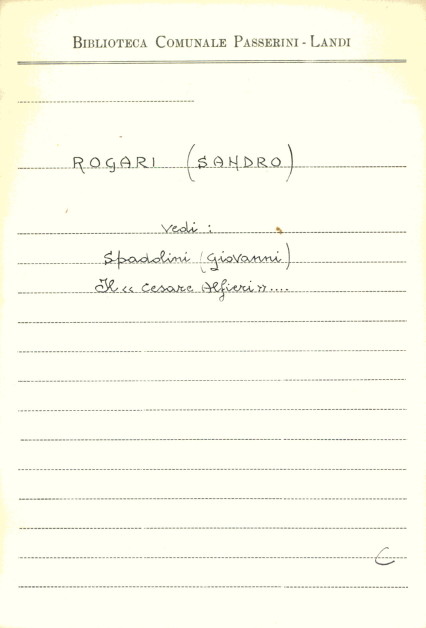 BIBLIOTECA COMUNALE PASSERINI - LANDI
ROGARI (SANDRO)
Vedi :
Spadolini (Giovanni)
Il « Cesare Alfieri »....
C